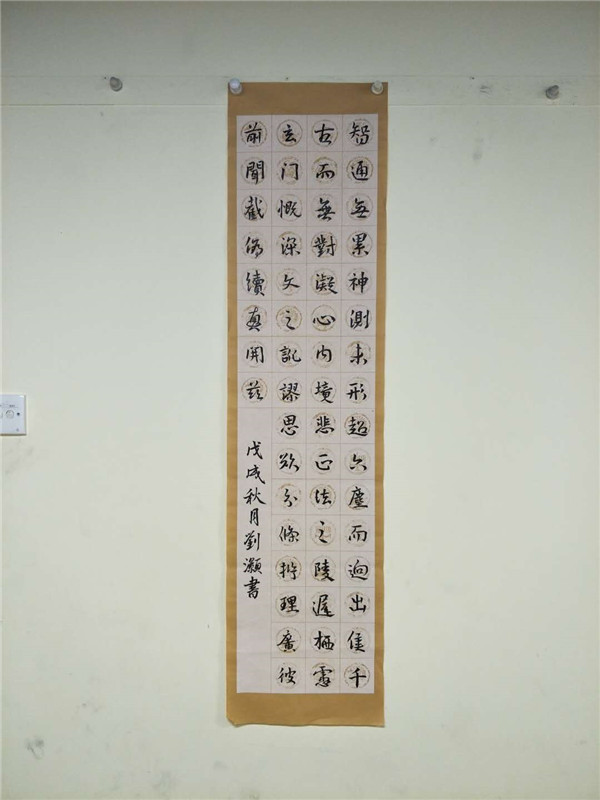 智通無累神測未形超六塵而迥出隻千
古而無對凝心內境悲正法之陵遲栖慮
玄门慨深文之訛謬思欲分條析理廣彼
前聞截偽續真開茲
戊戌秋月劉灝書